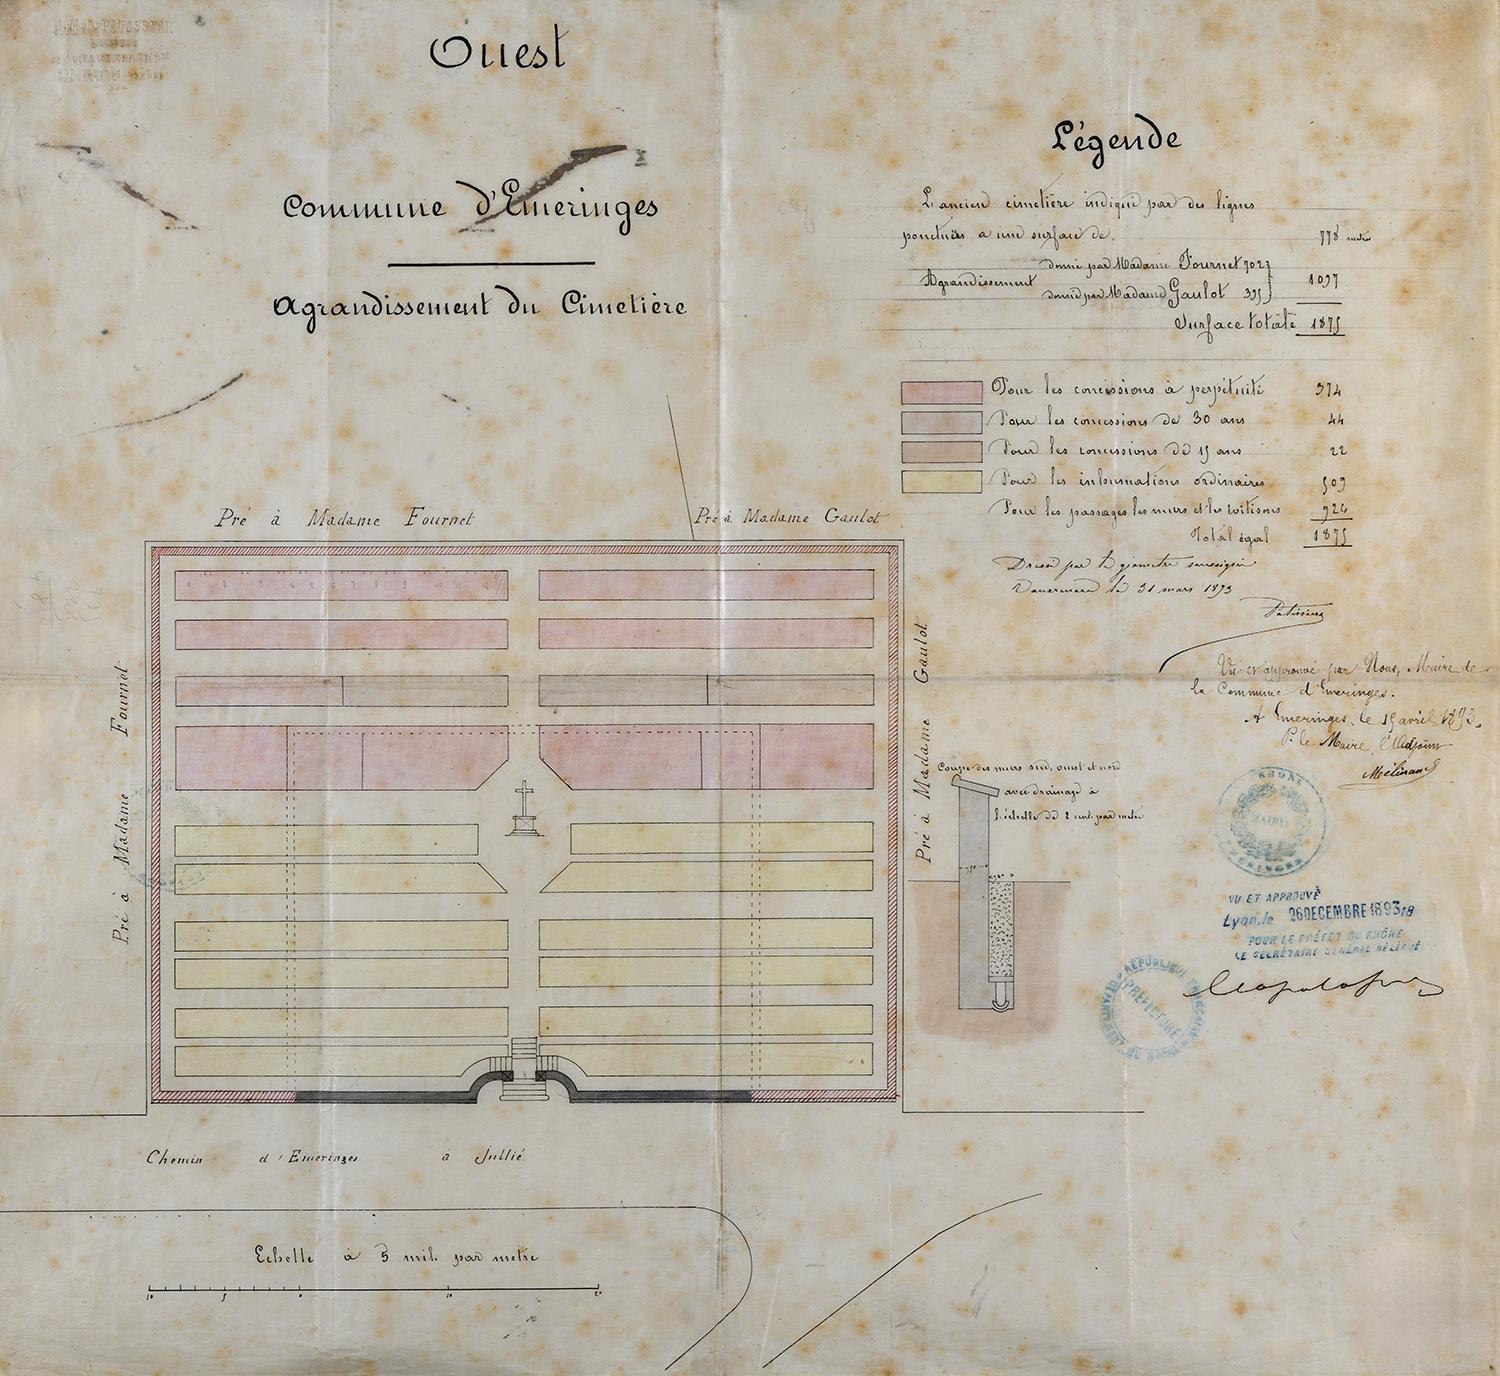 Ouest
Commune d'Emeringes
Agrandissement du Cimetière
Légende
L'ancien cimetière indiqué par des lignes
ponctuées a une surface de. 778 mètres
Agrandissement
donné par Madame Fournet 702
donné par Madame Gaulot 395
1097
Surface totale 1875
Pour les concessions à perpétuité 374
Pour les concessions de 30 ans 44
Pour les concessions de 15 ans 22
Pour les inhumations ordinaires 509
Pour les passages les murs et les 926
Total égal 1875
Dressé par le géomètre soussigné
le 31 mars 1893
Vu et approuvé par Nous, Maire de
la Commune d'Emeringes.
A Emeringes, le 15 avril 1893.
P. le Maire, l'Adjoint
Mélinand
Pré à Madame Fournet
Pré à Madame Gaulot
Pré à Madame Fournet
Pré à Madame Gaulot
Coupe des murs sud, ouest et nord
avec drainage à
l'échelle de 2 cent. par mètre
RHONE
MAIRIE
EMERINGES
VU ET APPROUVÉ
Lyon, le 26 DECEMBRE 1893
POUR LE PRÉFET DU RHÔNE
LE SECRÉTAIRE GÉNÉRAL DÉLÉGUÉ
REPUBLIQUE FRANÇAISE
PREFECTURE
DEPARTEMENT DU RHONE
Chemin d'Emeringes à Jullié
Echelle à 5 mil. par mètre
10 5 0 10 20